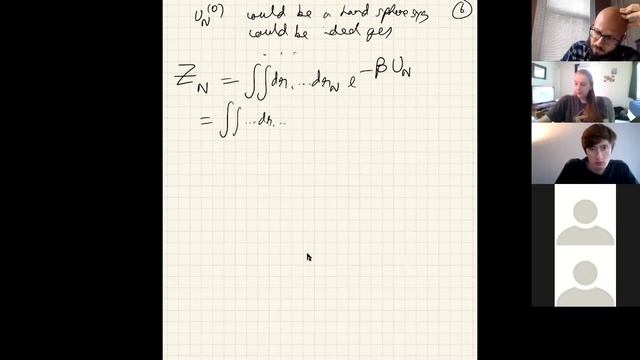 U_N^(0) would be a hard sphere sys 6
could be ideal gas
...
Z_N = ∫∫ dr, ... dr_N e^-βU_N
= ∫∫ ... dr, ...